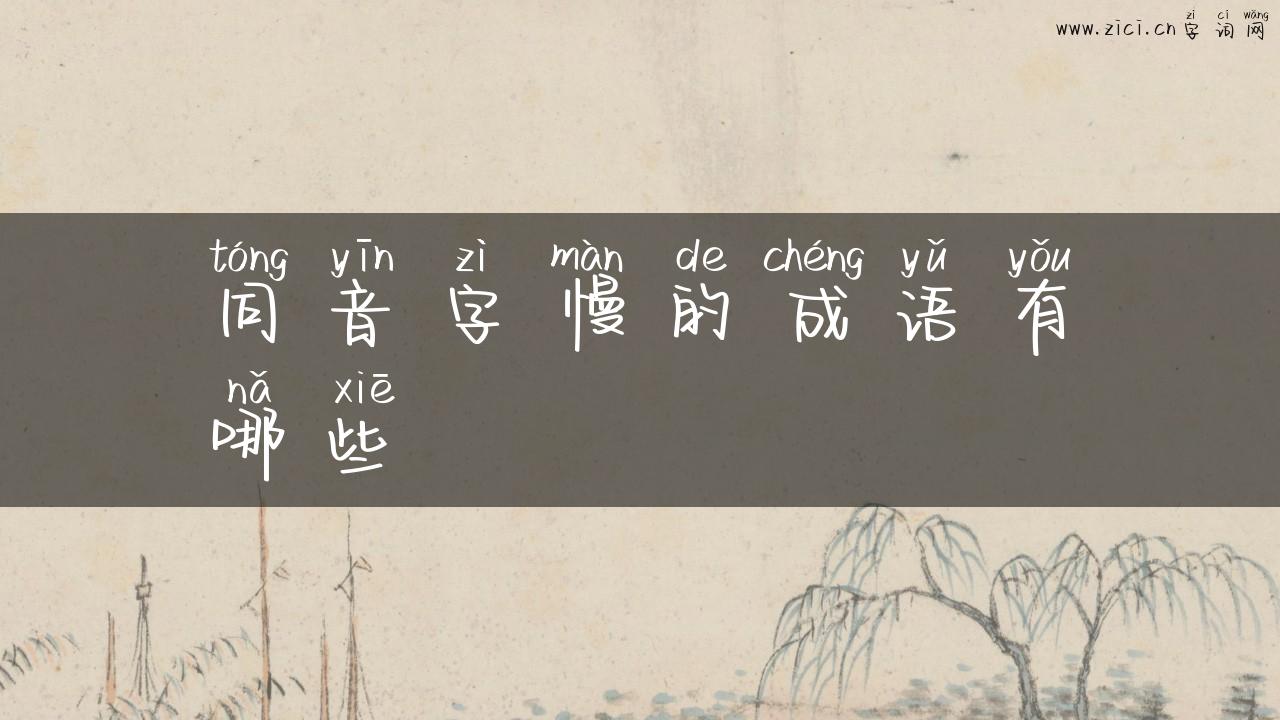 zì cí wǎng
www.zici.cn 字词网
tóng yīn zì màn de chéng yǔ yǒu
同音字慢的成语有
nǎ xiē
哪些